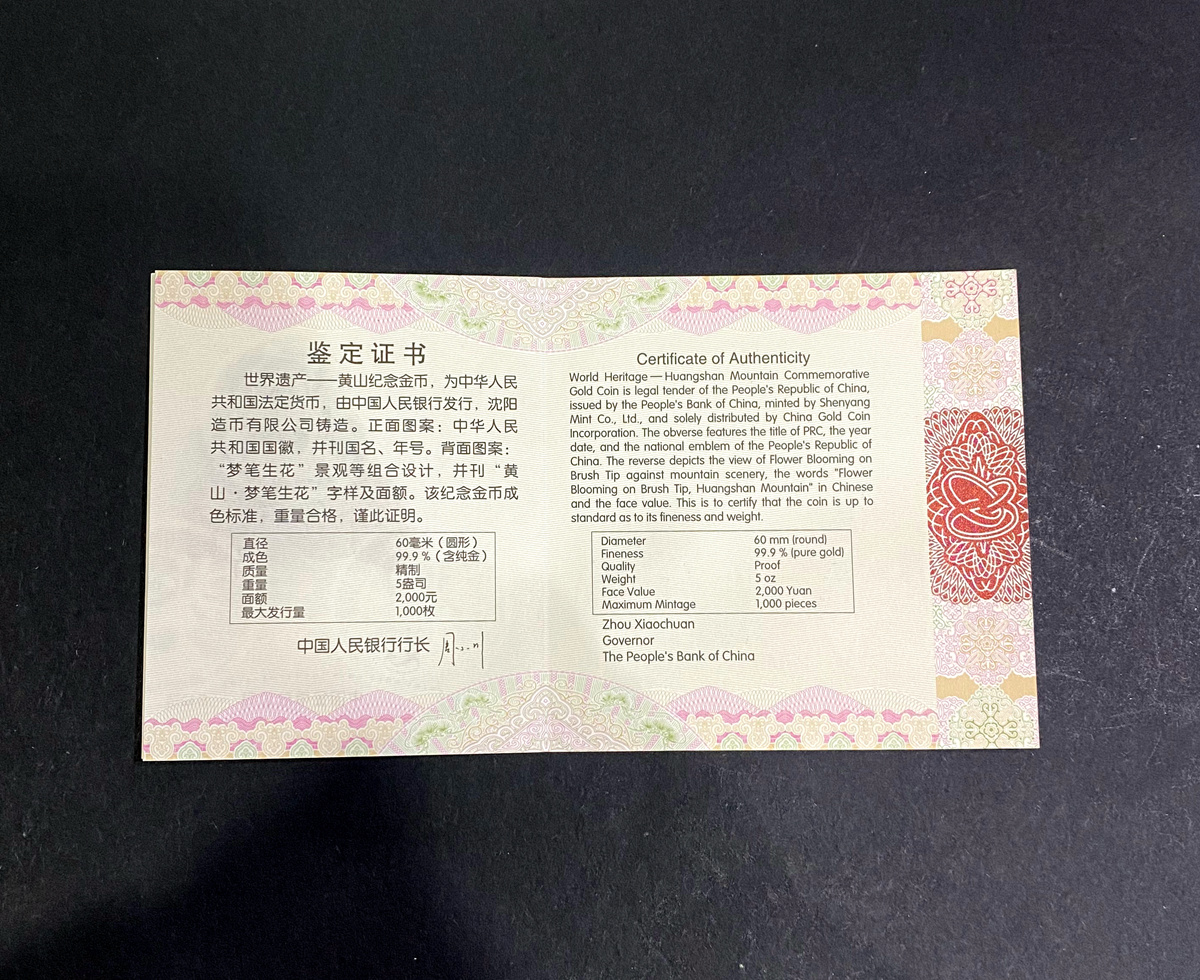 鉴定证书
世界遗产——黄山纪念金币，为中华人民
共和国法定货币，由中国人民银行发行，沈阳
造币有限公司铸造。正面图案：中华人民
共和国国徽，并刊国名、年号。背面图案：
“梦笔生花”景观等组合设计，并刊“黄
山·梦笔生花”字样及面额。该纪念金币成
色标准，重量合格，谨此证明。
直径 60毫米（圆形）
成色 99.9％（含纯金）
质量 精制
重量 5盎司
面额 2,000元
最大发行量 1,000枚
中国人民银行行长
Certificate of Authenticity
World Heritage — Huangshan Mountain Commemorative
Gold Coin is legal tender of the People's Republic of China,
issued by the People's Bank of China, minted by Shenyang
Mint Co., Ltd., and solely distributed by China Gold Coin
Incorporation. The obverse features the title of PRC, the year
date, and the national emblem of the People's Republic of
China. The reverse depicts the view of Flower Blooming on
Brush Tip against mountain scenery, the words "Flower
Blooming on Brush Tip, Huangshan Mountain" in Chinese
and the face value. This is to certify that the coin is up to
standard as to its fineness and weight.
Diameter 60 mm (round)
Fineness 99.9 % (pure gold)
Quality Proof
Weight 5 oz
Face Value 2,000 Yuan
Maximum Mintage 1,000 pieces
Zhou Xiaochuan
Governor
The People's Bank of China